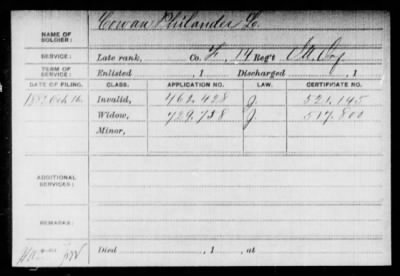 NAME OF SOLDIER: Cowan Philander L.
SERVICE: Late rank, Co. F, 14 Reg't Inf.
TERM OF SERVICE: Enlisted , 1 Discharged , 1
DATE OF FILING. CLASS. APPLICATION NO. LAW. CERTIFICATE NO.
1882 Oct. 16 Invalid, 462.428 J. 321.145
Widow, 729.738 J. 517.800
Minor,
ADDITIONAL SERVICES:
REMARKS:
Died , 1 , at